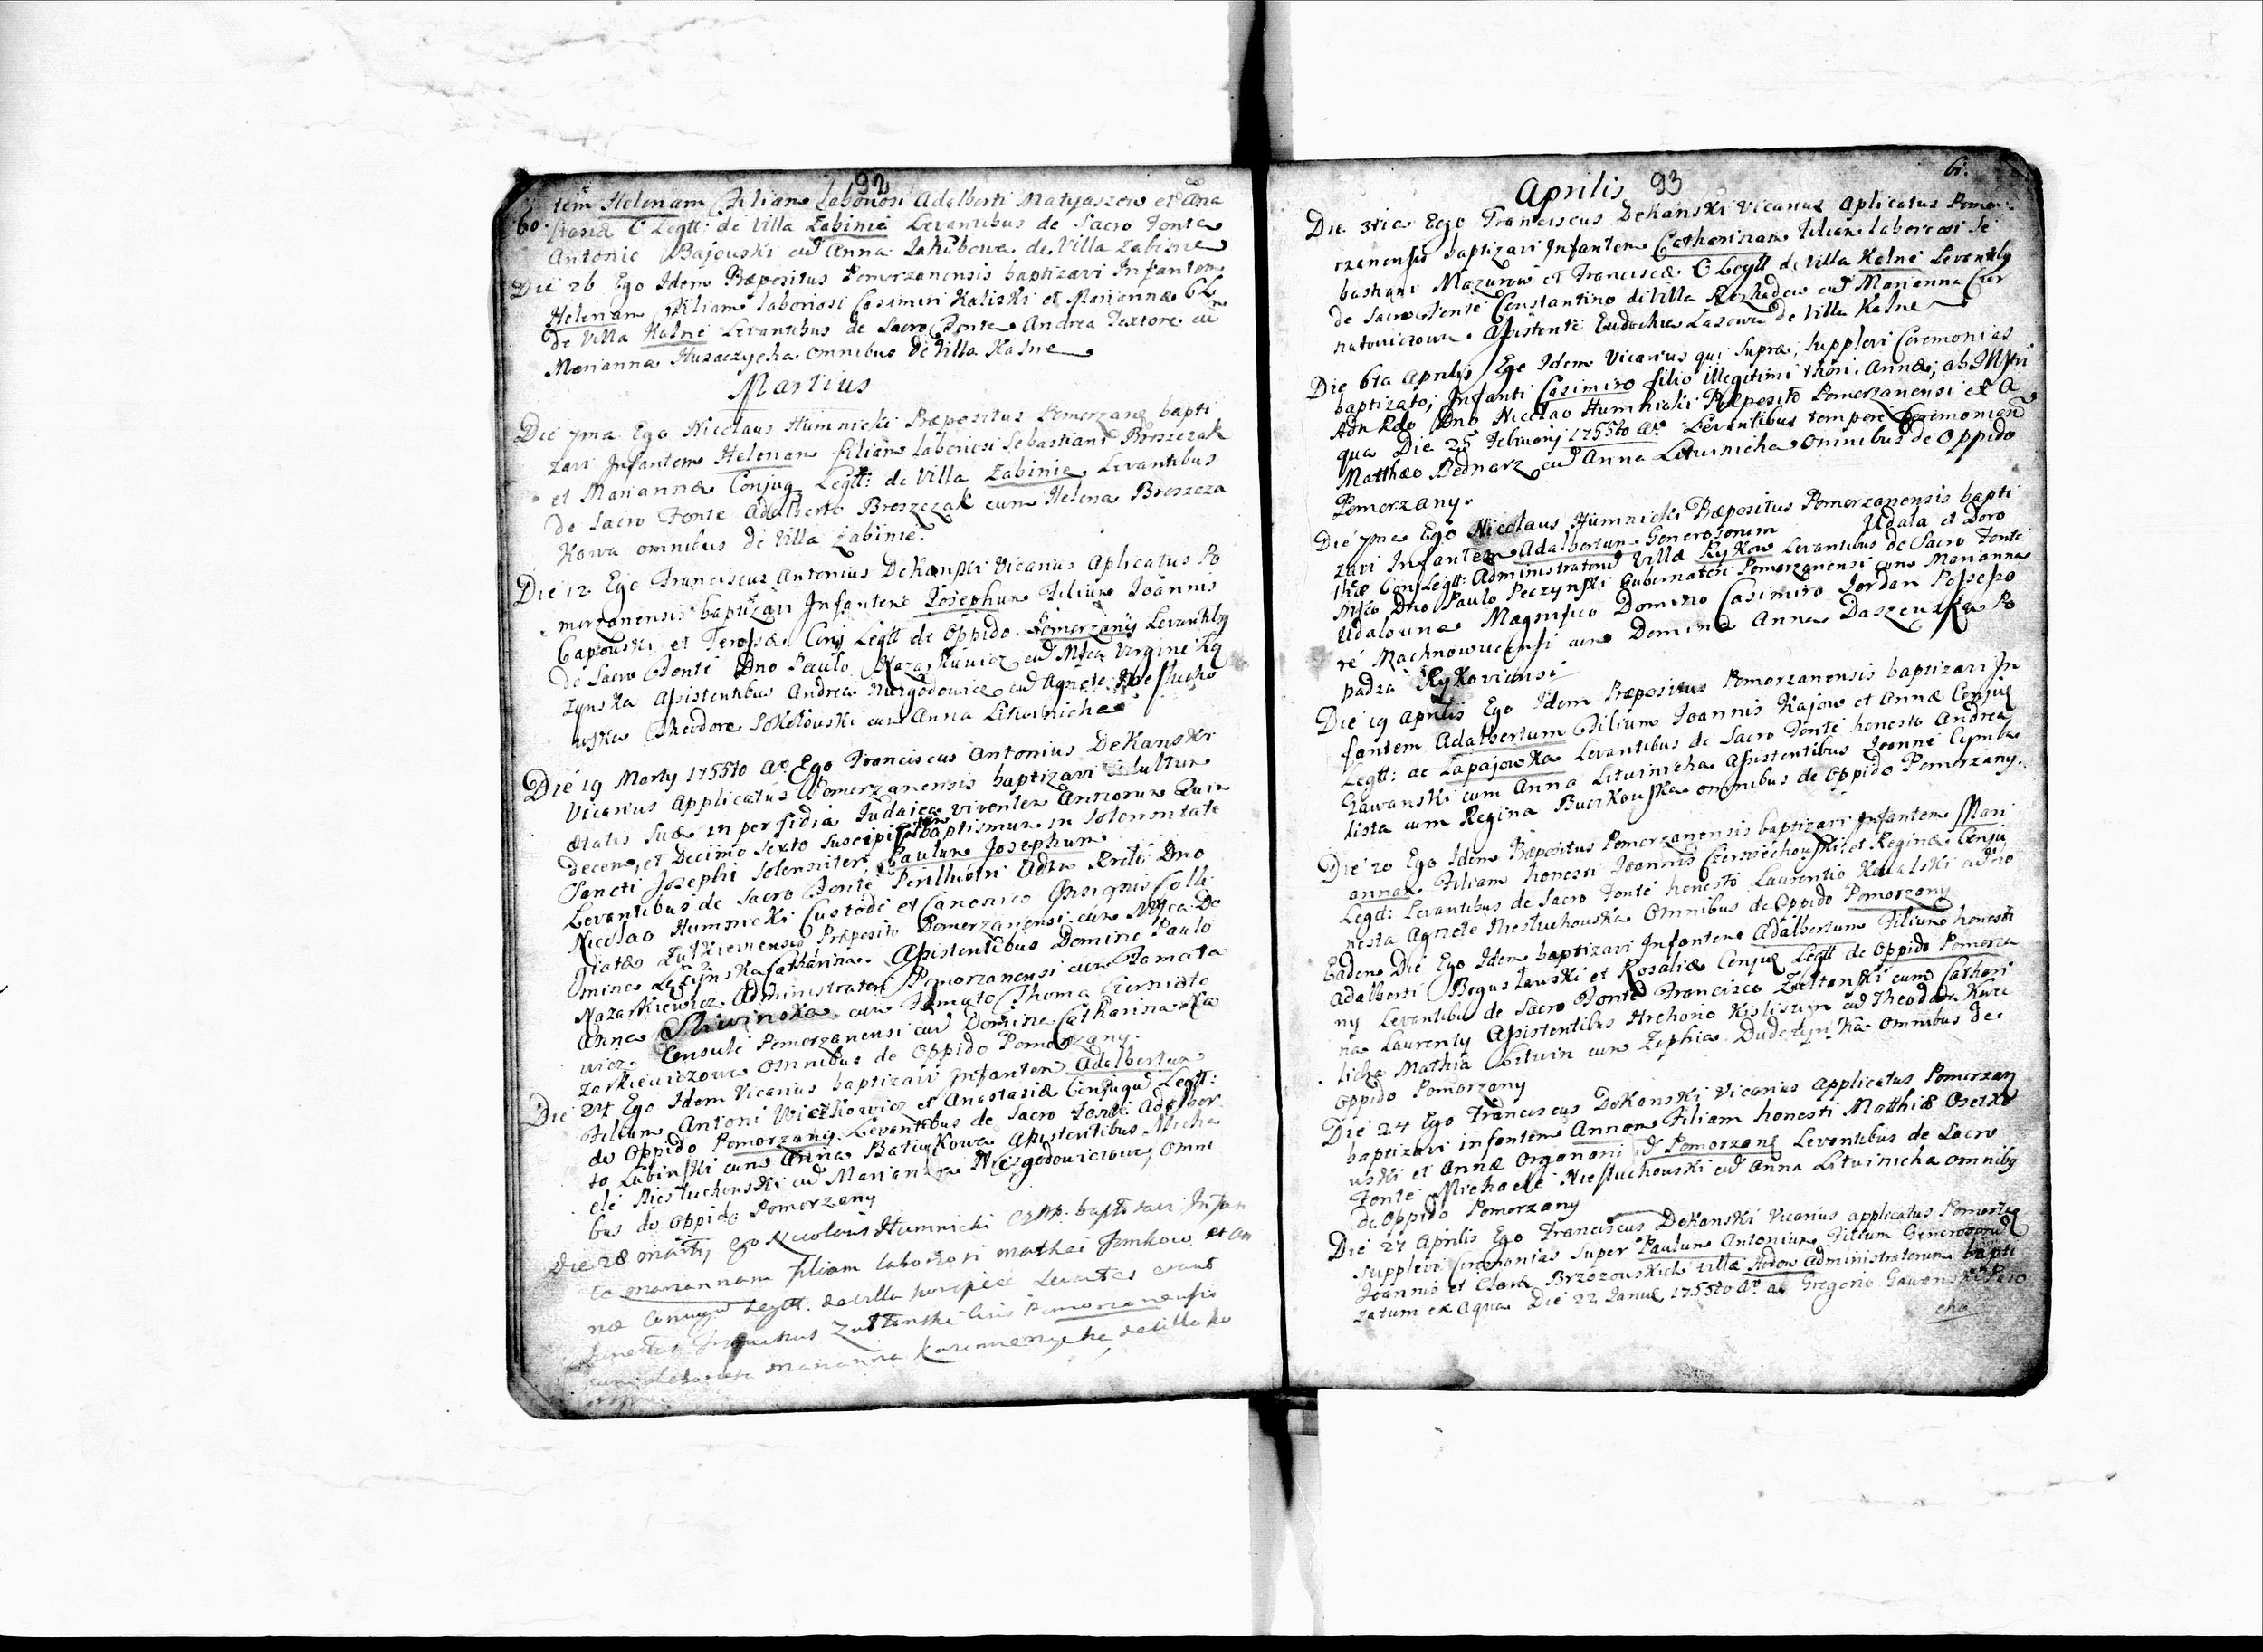 92
60. tem Helenam Filiam laboriosi Adalberti Matyaszow et Ana
stasiæ C Legtt: de Villa Żabinie Levantibus de Sacro Fonte
Antonio Bajouski cu Anna Jakubowa de Villa Żabinie
Die 26 Ego Idem Præpositus Pomorzanensis baptizavi Infantem
Helenam Filiam laboriosi Casimiri Kaliski et Mariannæ CL
de Villa Kalne Levantibus de Sacro Fonte Andrea Textore cu
Marianna Huzaczycha omnibus de Villa Kalne
Martius
Die 7ma Ego Nicolaus Humnicki Præpositus Pomorzanę bapti
zavi Infantem Helenam filiam laboriosi Sebastiani Broszczak
et Mariannæ Conjug Legtt: de Villa Żabinie Levantibus
de Sacro Fonte Adalberto Broszczak cum Helena Broszcza
kowa omnibus de Villa Żabinie.
Die 12 Ego Franciscus Antonius DeKanski Vicarius Aplicatus Po
morzanensis baptizavi Infantem Josephum Filium Joannis
Gapouski et Teressæ Conj Legtt de Oppido Pomorzany Levantibg
de Sacro Fonte Dno Paulo Nazarkiewicz cu Mfca Virgine
zynska Assistentibus Andrea Niezgodowicz cu Agnete Niesłucho
wska Theodoro Sokołouski cum Anna Lituinicha
Die 19 Martij 17555to Ao Ego Franciscus Antonius DeKanski
Vicarius Applicatus Pomorzanensis baptizavi Adultum
ætatis suæ in perfidia Judaica viventem Annorum Quin
decem, et Decimo Sexto Suscipi baptismum in Solennitate
Sancti Josephi Solenniter, Paulum Josephum
Levantibus de Sacro Fonte Perillustri Adm Rndo Dno
Nicolao Humnicki Custode et Canonico Insignis Colle
giatæ Zułkieviensis Præposito Pomorzanensi cum Mfca Do
mina Catharina Assistentibus Domino Paulo
Nazarkiewicz Administratori Pomorzanensi cum Famata
Anna Sliwinska cum Famato Thoma Czerniato
wicz Consuli Pomorzanensi cu Domina Catharina Na
zarkiewiczowa omnibus de Oppido Pomorzany.
Die 24 Ego Idem Vicarius baptizavi Infantem Adalbertum
Filium Antoni Woićikowicz et Anastasiæ Conjugu Legtt:
de Oppido Pomorzany Levantibus de Sacro Fonte Adalber
to Łubinski cum Anna Batiukowa Assistentibus Micha
ele Niesłuchouski cu Marianna Niezgodowiczowa, omni
bus de Oppido Pomorzany
Die 28 martij Ego Nicolaus Humnicki baptisavi Infan
te mariannam filiam laboriosi mathei Jemkow et an
næ Conjugu Legtt: de villa levantes erant
Zołtenski Civis Pomorzanensis
cum laboriosa marianna de villa
Aprilis 93 61.
Die 3tia Ego Franciscus DeKanski Vicarius Aplicatus Pomo
rzanensis baptizavi Infantem Catharinam Filiam laboriosi Se
bastiani Mazurow et Franciscæ C Legtt de Villa Kalne Levantibg
de Sacro Fonte Constantino de Villa Rozhadow cu Marianna Czer
natowiczowa. Assistente Eudochia Lasowa de Villa Kalne
Die 6ta Aprilis Ego Idem Vicarius qui supra, supplevi Ceremonias
baptizato, Infanti Casimiro filio illegitimi thori Annæ, ab Illstri
Adm Rdo Dno Nicolao Humnicki Præposito Pomorzanensi ex A
qua Die 25 Februarij 17555to Ao Levantibus tempore Ceremoniaru
Matthæo Bednarz cu Anna Lituinicha omnibus de Oppido
Pomorzany.
Die 7ma Ego Nicolaus Humnicki Præpositus Pomorzanensis bapti
zavi Infantem Adalbertum Generosorum Udala et Doro
theæ Conj Legtt: Administratoru Villæ Rykow Levantibus de Sacro Fonte
Mfco Dno Paulo Peczynski Gubernatori Pomorzanensi cum Marianna
Udalouna Magnifico Domino Casimiro Jordan Possesso
re Machnowiecensi cum Domina Anna Daszeuska Po
padza Rykoviensi
Die 19 Aprilis Ego Idem Præpositus Pomorzanensis baptizavi In
fantem Adalbertum Filium Joannis Kajow et Annæ Conjug
Legtt: de Łapajowka Levantibus de Sacro Fonte honesto Andrea
Gawanski cum Anna Lituinicha Assistentibus Joanne Cymba
lista cum Regina Buczkouska omnibus de Oppido Pomorzany.
Die 20 Ego Idem Præpositus Pomorzanensis baptizavi Infantem Mari
annam Filiam honesti Joannis Czerwiechouski et Reginæ Conju
Legtt: Levantibus de Sacro Fonte honesto Laurentio Kowalski cu ho
nesta Agnete Niesłuchouska omnibus de Oppido Pomorzany
Eadem Die Ego Idem baptizavi Infantem Adalbertum Filium honesti
Adalberti Bogusławski et Rosaliæ Conjug Legtt de Oppido Pomorza
ny Levantibus de Sacro Fonte Francisco Zołtanski cum Cathari
na Laurenty Assistentibus Archono Kisliszyn cu Theododa Kura
licha Mathia Lituin cum Zophia Dudczynka omnibus de
Oppido Pomorzany
Die 24 Ego Franciscus DeKonski Vicarius Applicatus Pomorzanę
baptizavi infantem Annam Filiam honesti Matthiæ Osetko
wski et Annæ Organoni Pomorzanę Levantibus de Sacro
Fonte Michaele Niesłuchouski cu Anna Lituinicha omnibg
de Oppido Pomorzany
Die 27 Aprilis Ego Franciscus DeKanski Vicarius applicatus Pomorza
supplevi Ceremonias super Paulum Antonium Filium Generosoru
Joannis et Claræ Brzozouskich Villæ Hodow Administratorum bapti
zatum ex Aqua Die 22 Janua 17555to Ao a Gregorio Gawanski Paro
cho